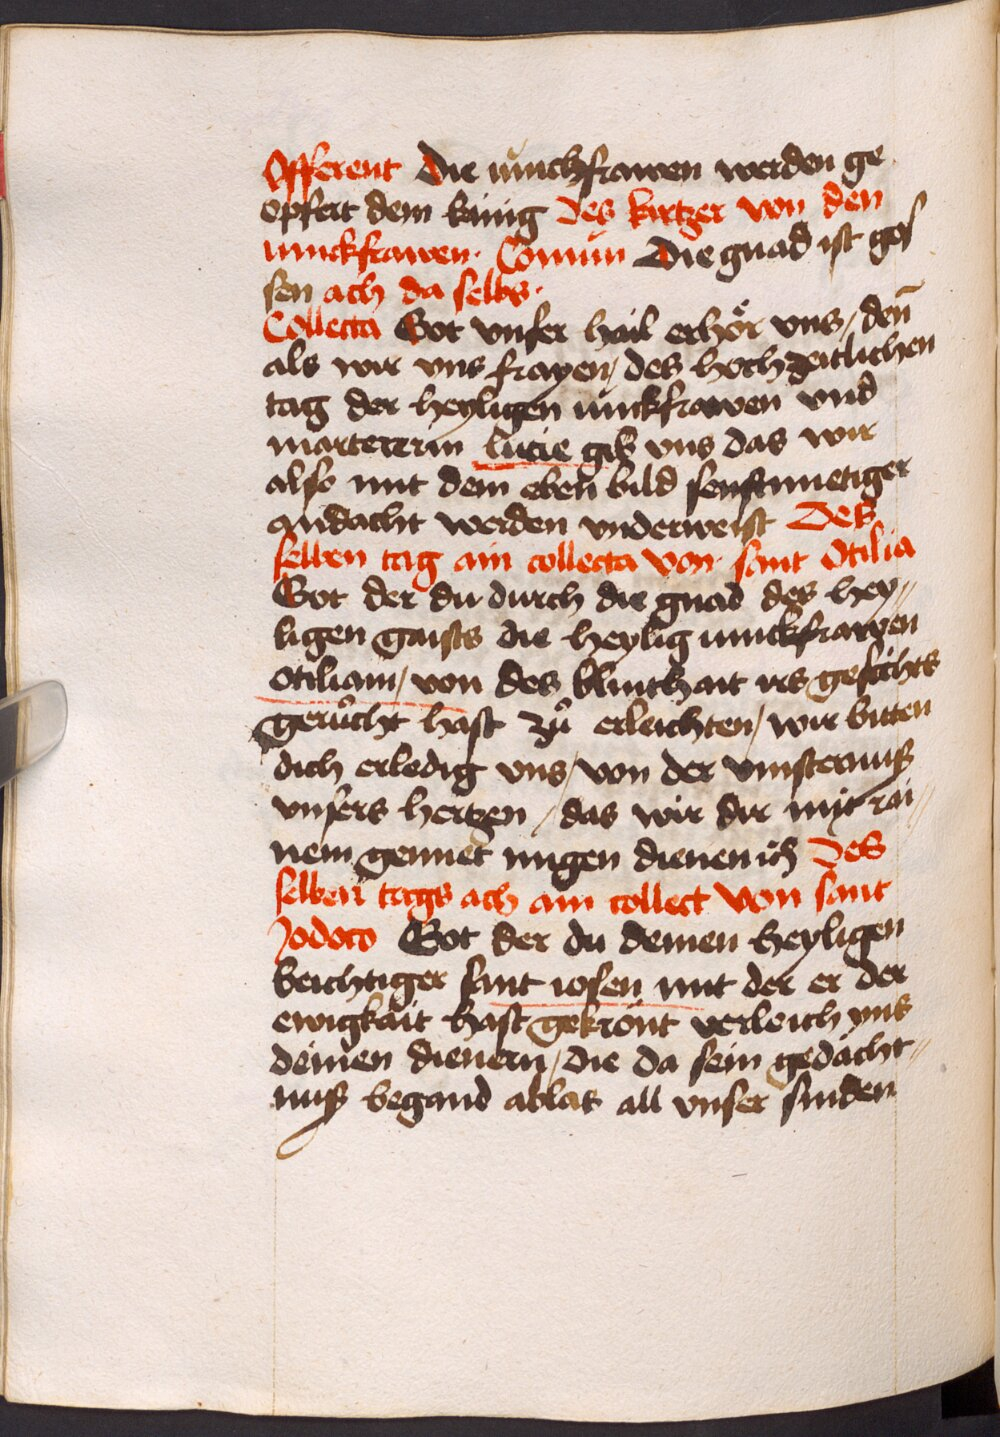 Offerent Die iunchfrawen werden ge
opfert dem künig Des kurtzer von den
iunckfrawen. Comun Die gnad ist gos
sen ach da selbs.
Collecta Got vnser hail erhör vns / den̄
als wir vns frayen / des hochzeitlichen
tag der heyligen iunckfrawen vnd
martererin lucie gib vns das wir
also mit dem eben bild senftmuetiger
andacht werden vnderweist Des
selben tag ain collecta von sant Otilia
Got der du durch die gnad des hey〃
ligen gaists die heylig iunckfrawen
otiliam / von des blinthait irs gesichts
gerůcht hast zů erleichten / wir bitten
dich erledig vns / von der vinsternuß
vnsers hertzen / das wir dir mit rai〃
nem gemuet mugen dienen ich Des
selben tags ach ain collect von sant
Jodoco Got der du deinen heyligen
beichtiger sant iosen mit der er der
ewigkait hast gekrönt verleich vns
deinen dienern / die da sein gedächt〃
nuß begand ablas all vnser sunden